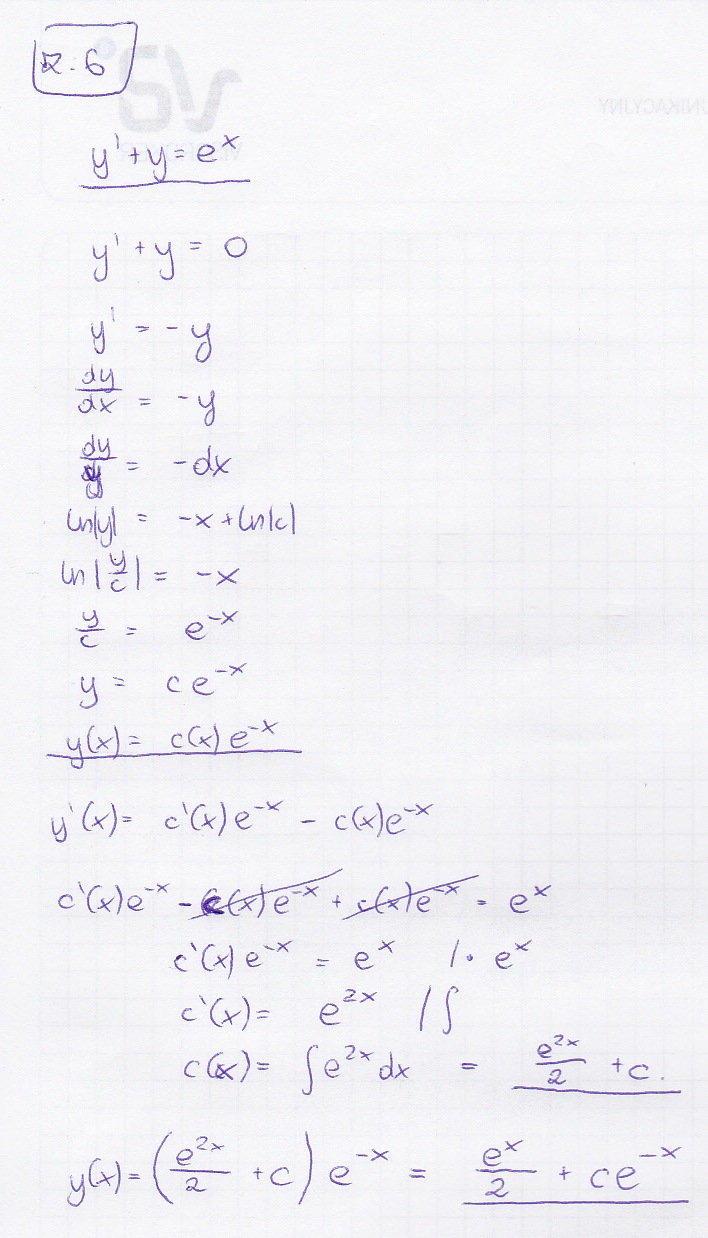 z. 6
y' + y = e^x
y' + y = 0
y' = -y
dy/dx = -y
dy/y = -dx
ln|y| = -x + ln|c|
ln|y/c| = -x
y/c = e^-x
y = ce^-x
y(x) = c(x)e^-x
y'(x) = c'(x)e^-x - c(x)e^-x
c'(x)e^-x - c(x)e^-x + c(x)e^-x = e^x
c'(x)e^-x = e^x /· e^x
c'(x) = e^2x /∫
c(x) = ∫e^2x dx = e^2x/2 + c.
y(x) = (e^2x/2 + c) e^-x = e^x/2 + ce^-x